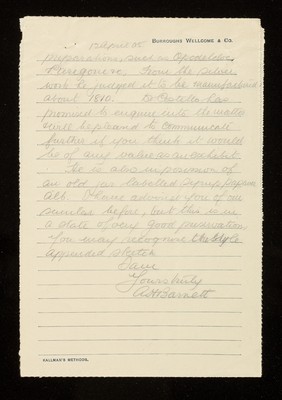 BURROUGHS WELLCOME & CO.
preparations, such as Opodeldoc
Paregoric. From the
work he judged it to be manufactured
about 1810. Dr Costello has
promised to enquire into the matter
will be pleased to communicate
further if you think it would
be of any value as an exhibit.
He is also in possession of
an old jar labelled Syrup
Alb. I have advised you of one
similar before, but this is in
a state of very good preservation.
You may recognise the style
appended sketch
I am
Yours truly
A H Barnett
KALLMAN'S METHODS.